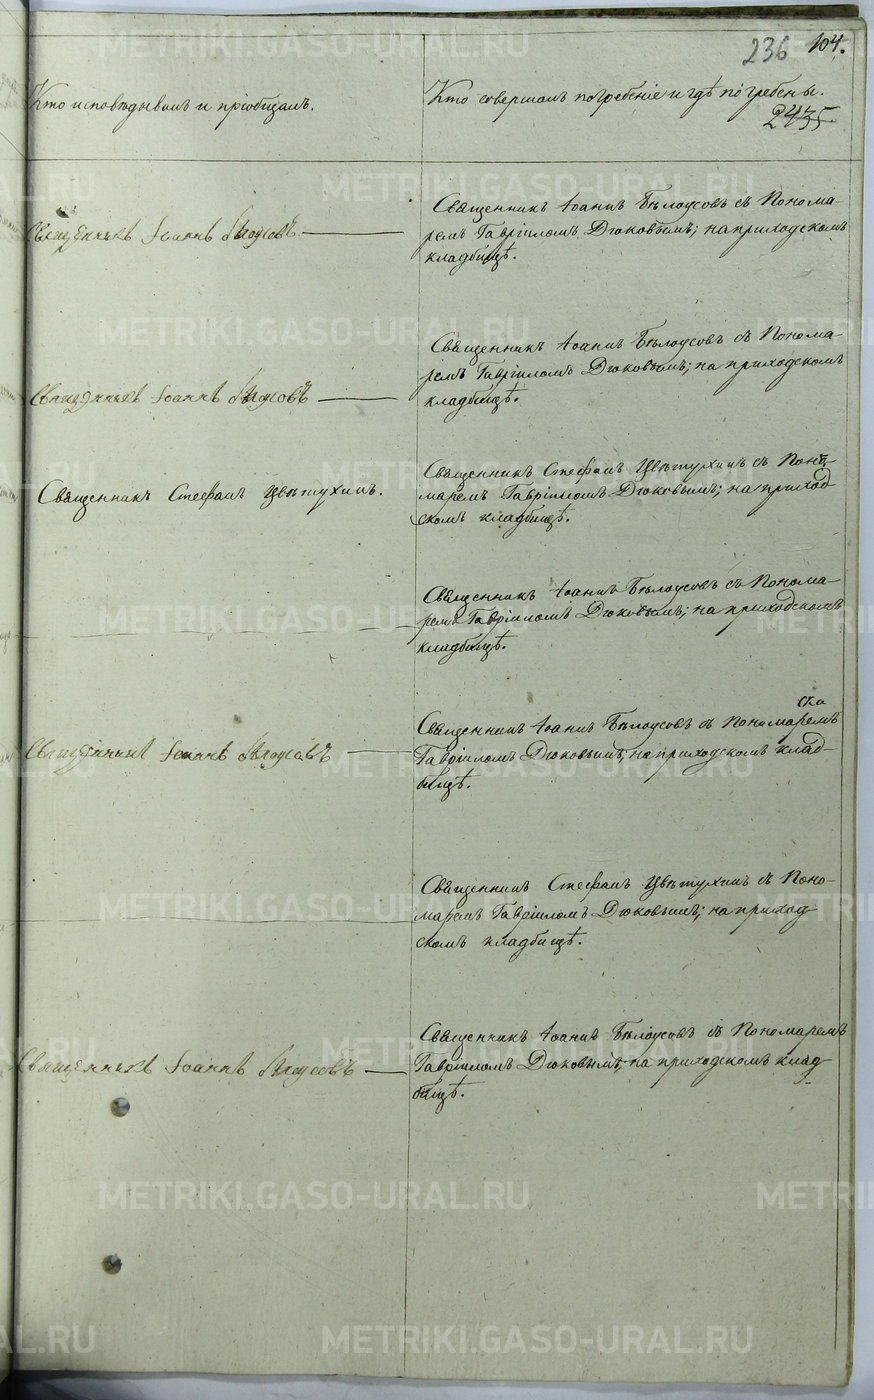 236 104.
Кто исповѣдывалъ и пріобщалъ.
Кто совершалъ погребеніе и гдѣ погребены.
2435
Священникъ Іоаннъ Бѣлоусовъ
Священникъ Іоаннъ Бѣлоусовъ съ Понома-
ремъ Гавріиломъ Дюковымъ; на приходскомъ
кладбищѣ.
Священникъ Іоаннъ Бѣлоусовъ
Священникъ Іоаннъ Бѣлоусовъ съ Понома-
ремъ Гавріиломъ Дюковымъ; на приходскомъ
кладбищѣ.
Священникъ Стефанъ Цвѣтухинъ.
Священникъ Стефанъ Цвѣтухинъ съ Поно-
маремъ Гавріиломъ Дюковымъ; на приход
скомъ кладбищѣ.
Священникъ Іоаннъ Бѣлоусовъ съ Понома-
ремъ Гавріиломъ Дюковымъ; на приходскомъ
кладбищѣ.
Священникъ Іоаннъ Бѣлоусовъ
Священникъ Іоаннъ Бѣлоусовъ съ Пономаремъ
Гавріиломъ Дюковымъ; на приходскомъ клад-
бищѣ.
Священникъ Стефанъ Цвѣтухинъ съ Поно-
маремъ Гавріиломъ Дюковымъ; на приход
скомъ кладбищѣ.
Священникъ Іоаннъ Бѣлоусовъ
Священникъ Іоаннъ Бѣлоусовъ съ Пономаремъ
Гавріиломъ Дюковымъ; на приходскомъ клад
бищѣ.
METRIKI.GASO-URAL.RU